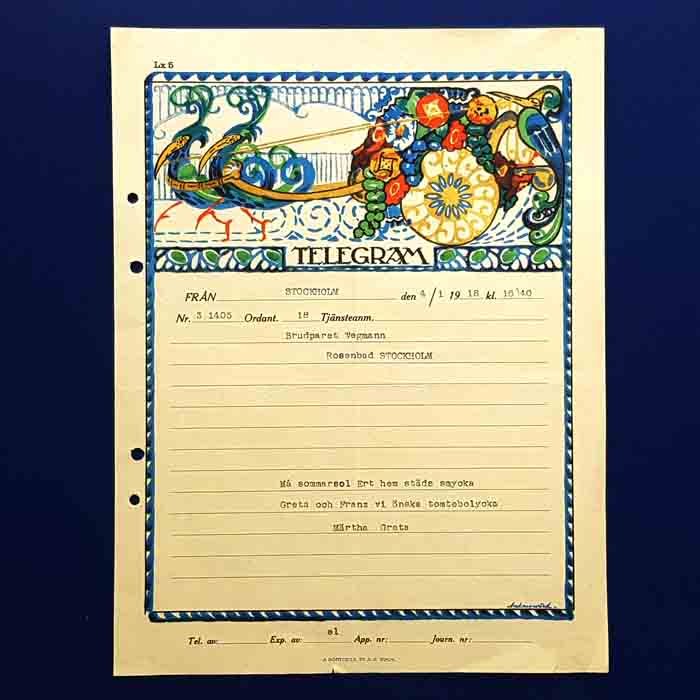 Lx 5
TELEGRAM
FRÅN STOCKHOLM den 4/1 1918 kl. 16 40
Nr. 3 1405 Ordant. 18 Tjänsteanm.
Brudparet Vegmann
Rosenbad STOCKHOLM
Må sommarsol Ert hem städs smycka
Greta och Franz vi önska tomtebolycka
Märtha Greta
Tel. av Exp. av el App. nr: Journ. nr: